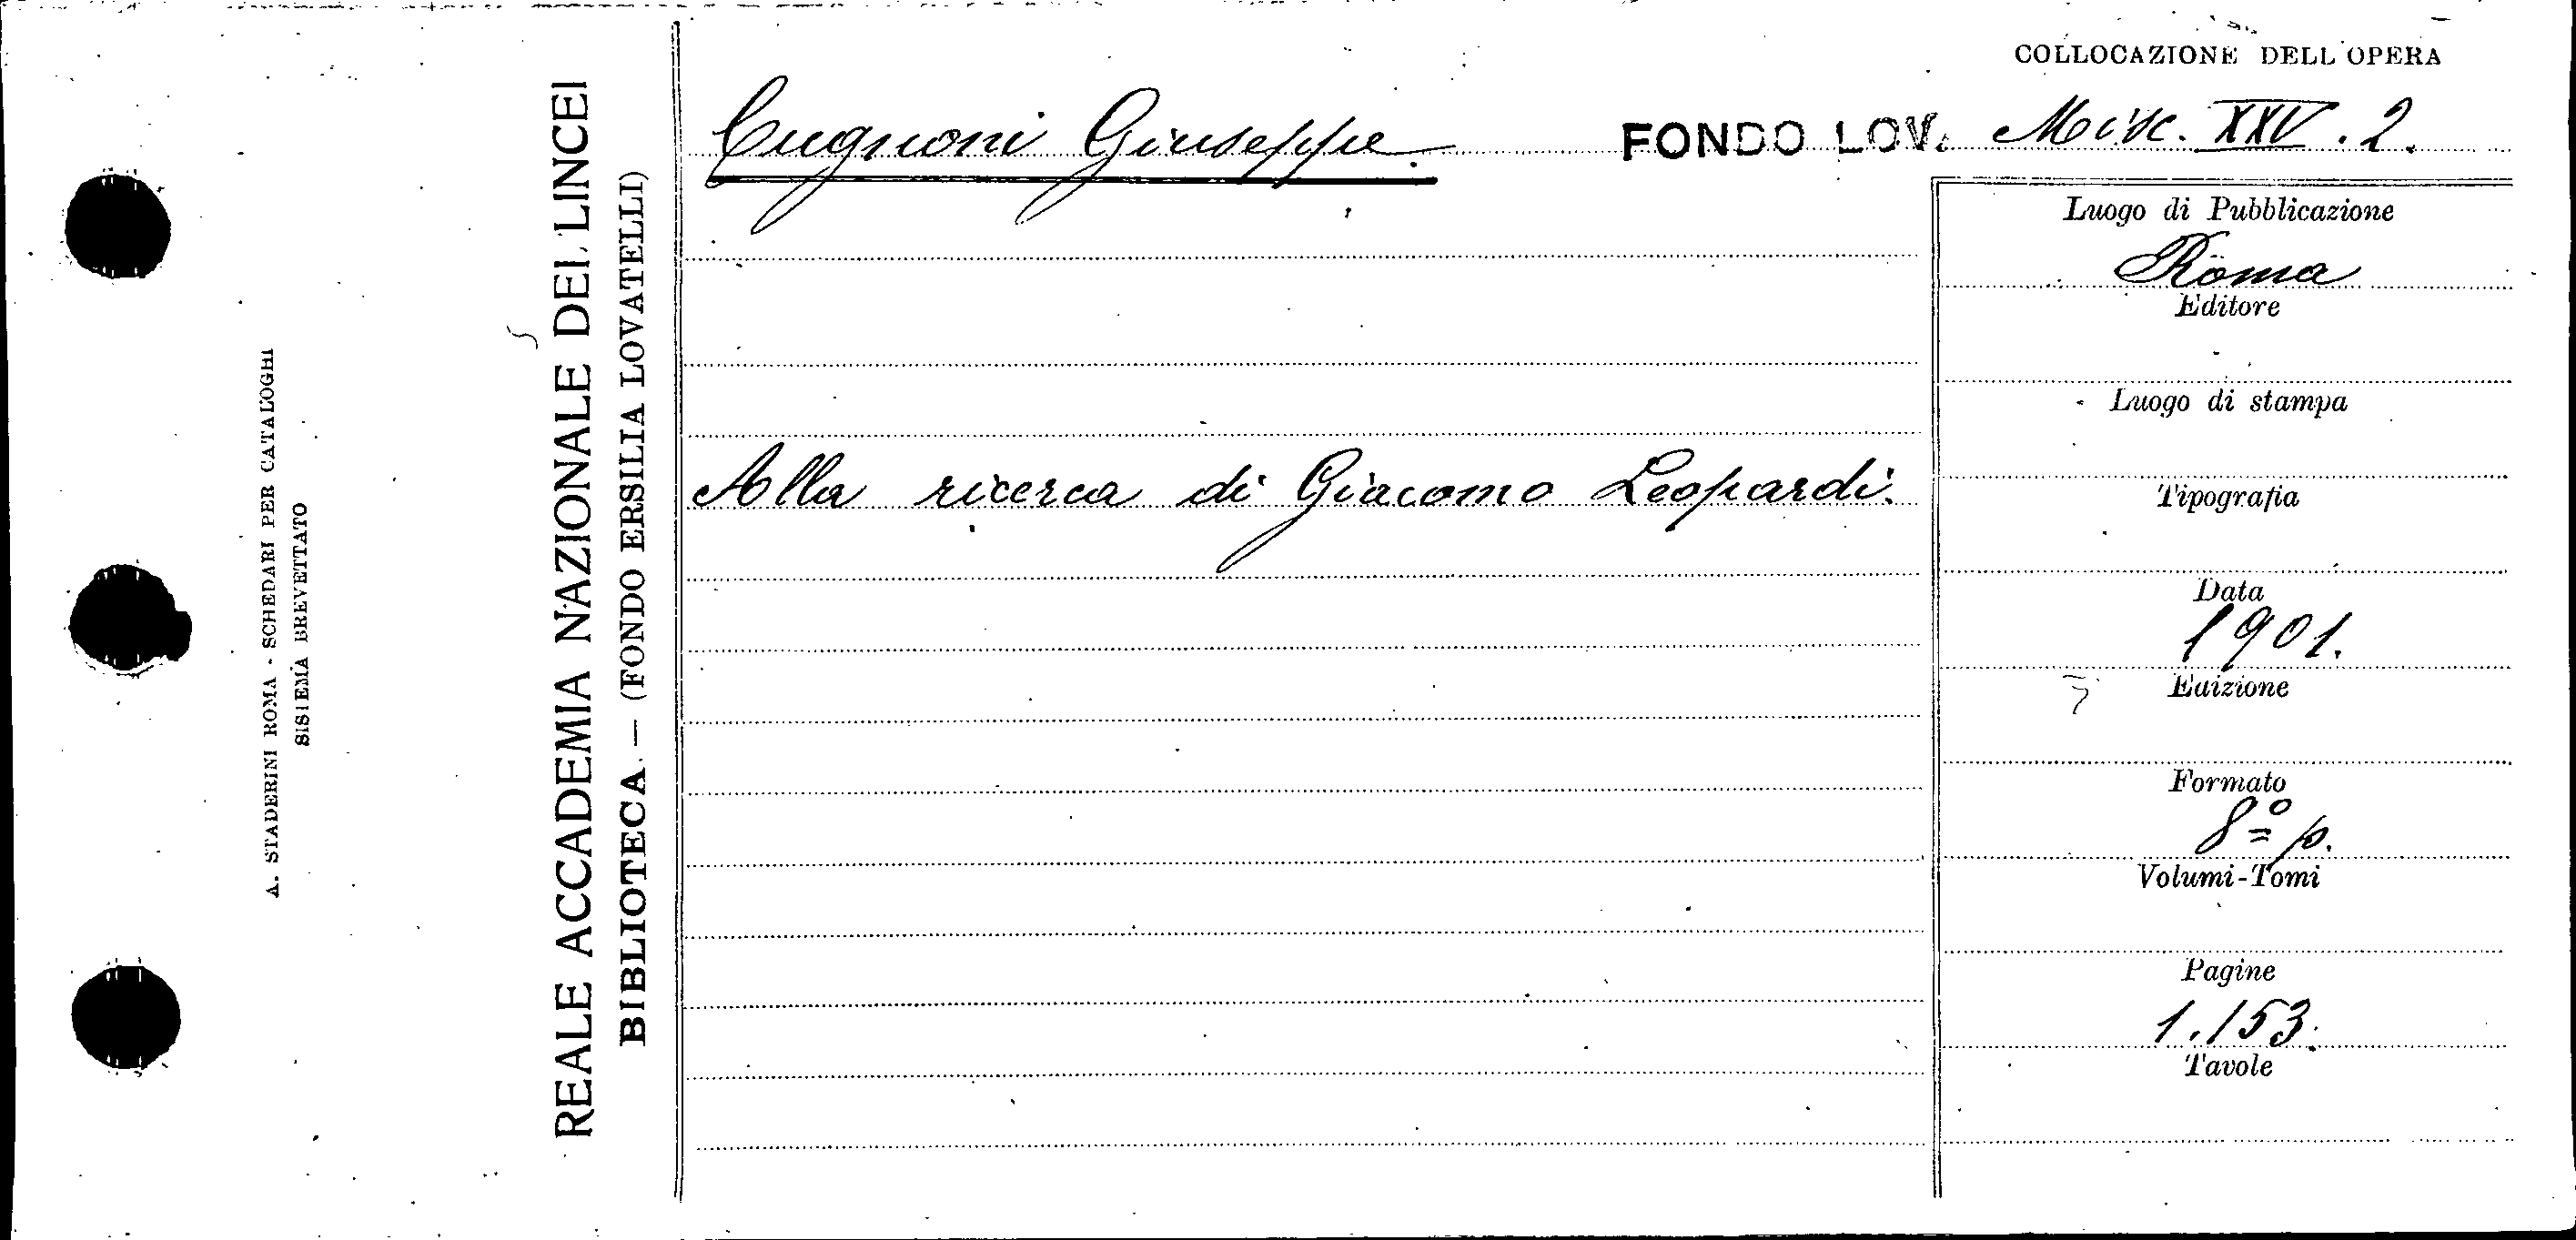 A. STADERINI ROMA - SCHEDARI PER CATALOGHI
SISTEMA BREVETTATO
REALE ACCADEMIA NAZIONALE DEI LINCEI
BIBLIOTECA. — (FONDO ERSILIA LOVATELLI)
COLLOCAZIONE DELL'OPERA
Cugnoni Giuseppe. FONDO LOV. Misc. XXV. 2.
Luogo di Pubblicazione
Roma
Editore
Luogo di stampa
Alla ricerca di Giacomo Leopardi.
Tipografia
Data
1901.
Edizione
Formato
8º p.
Volumi-Tomi
Pagine
1.153.
Tavole